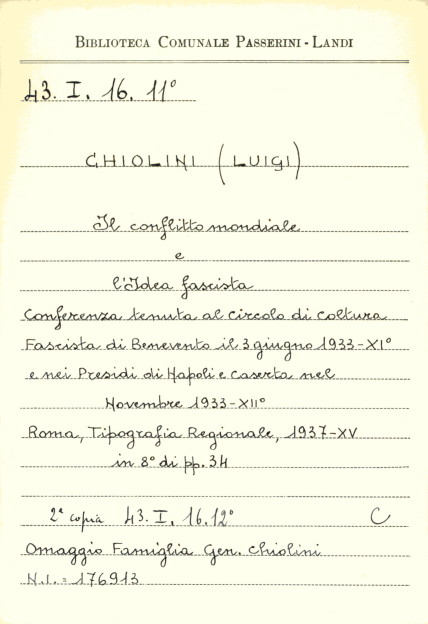 BIBLIOTECA COMUNALE PASSERINI - LANDI
43. I. 16. 11°
CHIOLINI (LUIGI)
Il conflitto mondiale
e
l'Idea fascista
Conferenza tenuta al circolo di coltura
Fascista di Benevento il 3 giugno 1933-XI°
e nei Presidi di Napoli e Caserta nel
Novembre 1933-XII°
Roma, Tipografia Regionale, 1937-XV
in 8° di pp. 34
2ª copia 43. I. 16. 12° C
Omaggio Famiglia Gen. Chiolini
N.I. = 176913